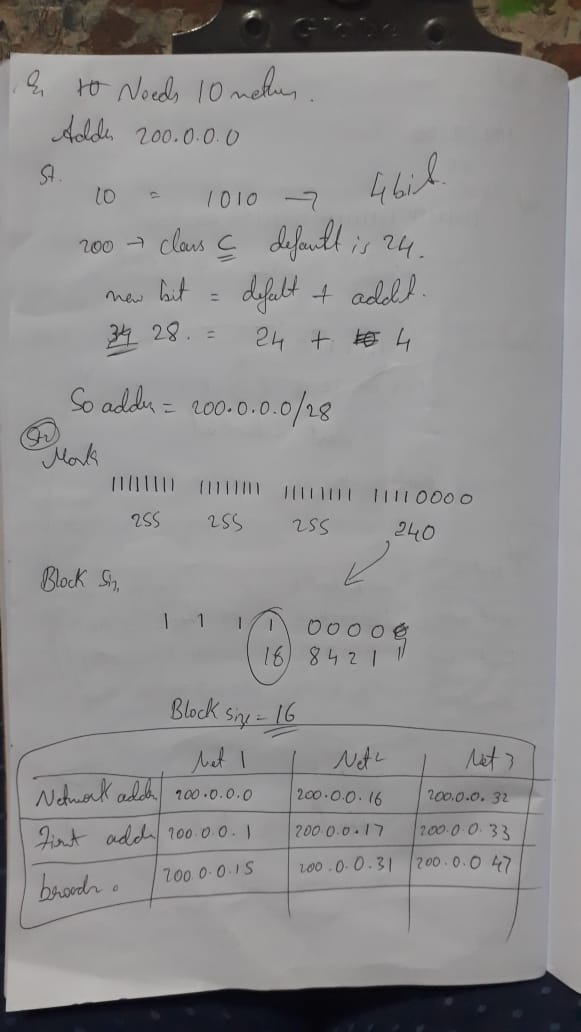 Globe
Q. Needs 10
200.0.0.0
St.
10 = 1010 → 4 bit.
200 → class C default is 24.
new bit = defalt + addt.
34 28. = 24 + 10 4
So addr = 200.0.0.0/28
St2
Mask
11111111 11111111 11111111 11110000
255 255 255 240
Block Siz
1 1 1 1 0000
16 8 4 2 1
Block size = 16
Net 1 Net 2 Net 3
Network addr 200.0.0.0 200.0.0.16 200.0.0.32
First addr 200.0.0.1 200.0.0.17 200.0.0.33
broadr. 200.0.0.15 200.0.0.31 200.0.0 47